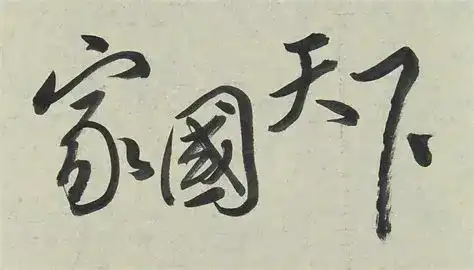 家國天下